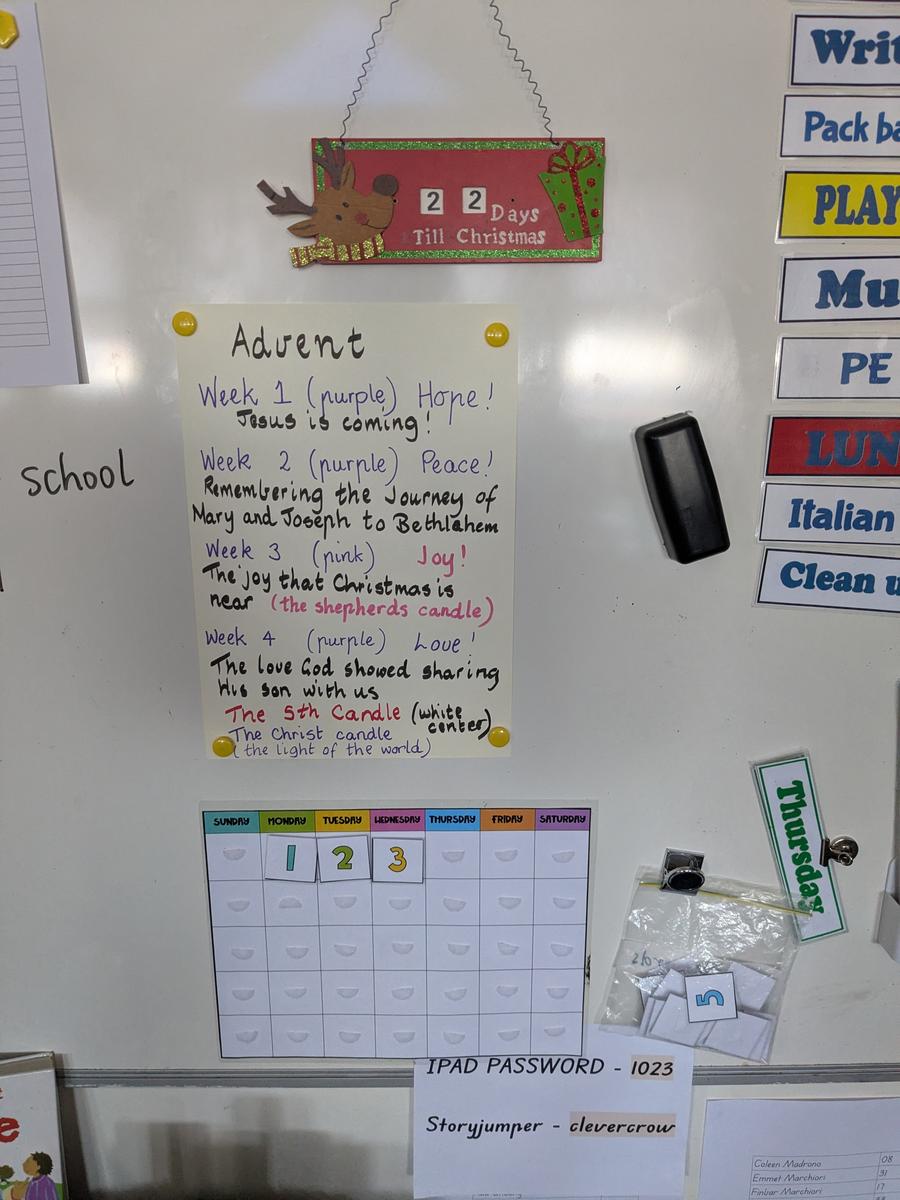 2 2 Days
Till Christmas
Advent
Week 1 (purple) Hope!
Jesus is coming!
Week 2 (purple) Peace!
Remembering the Journey of
Mary and Joseph to Bethlehem
Week 3 (pink) Joy!
The joy that Christmas is
near (the shepherds candle)
Week 4 (purple) Love!
The love God showed sharing
His son with us
The 5th Candle (white
center)
The Christ candle
(the light of the world)
school
Writ
Pack ba
PLAY
Mu
PE
LUN
Italian
Clean u
Thursday
SUNDAY MONDAY TUESDAY WEDNESDAY THURSDAY FRIDAY SATURDAY
1 2 3
5
IPAD PASSWORD - 1023
Storyjumper - clevercrow
Coleen Madrono 08
Emmet Marchiori 31
Finbar Marchiori 17